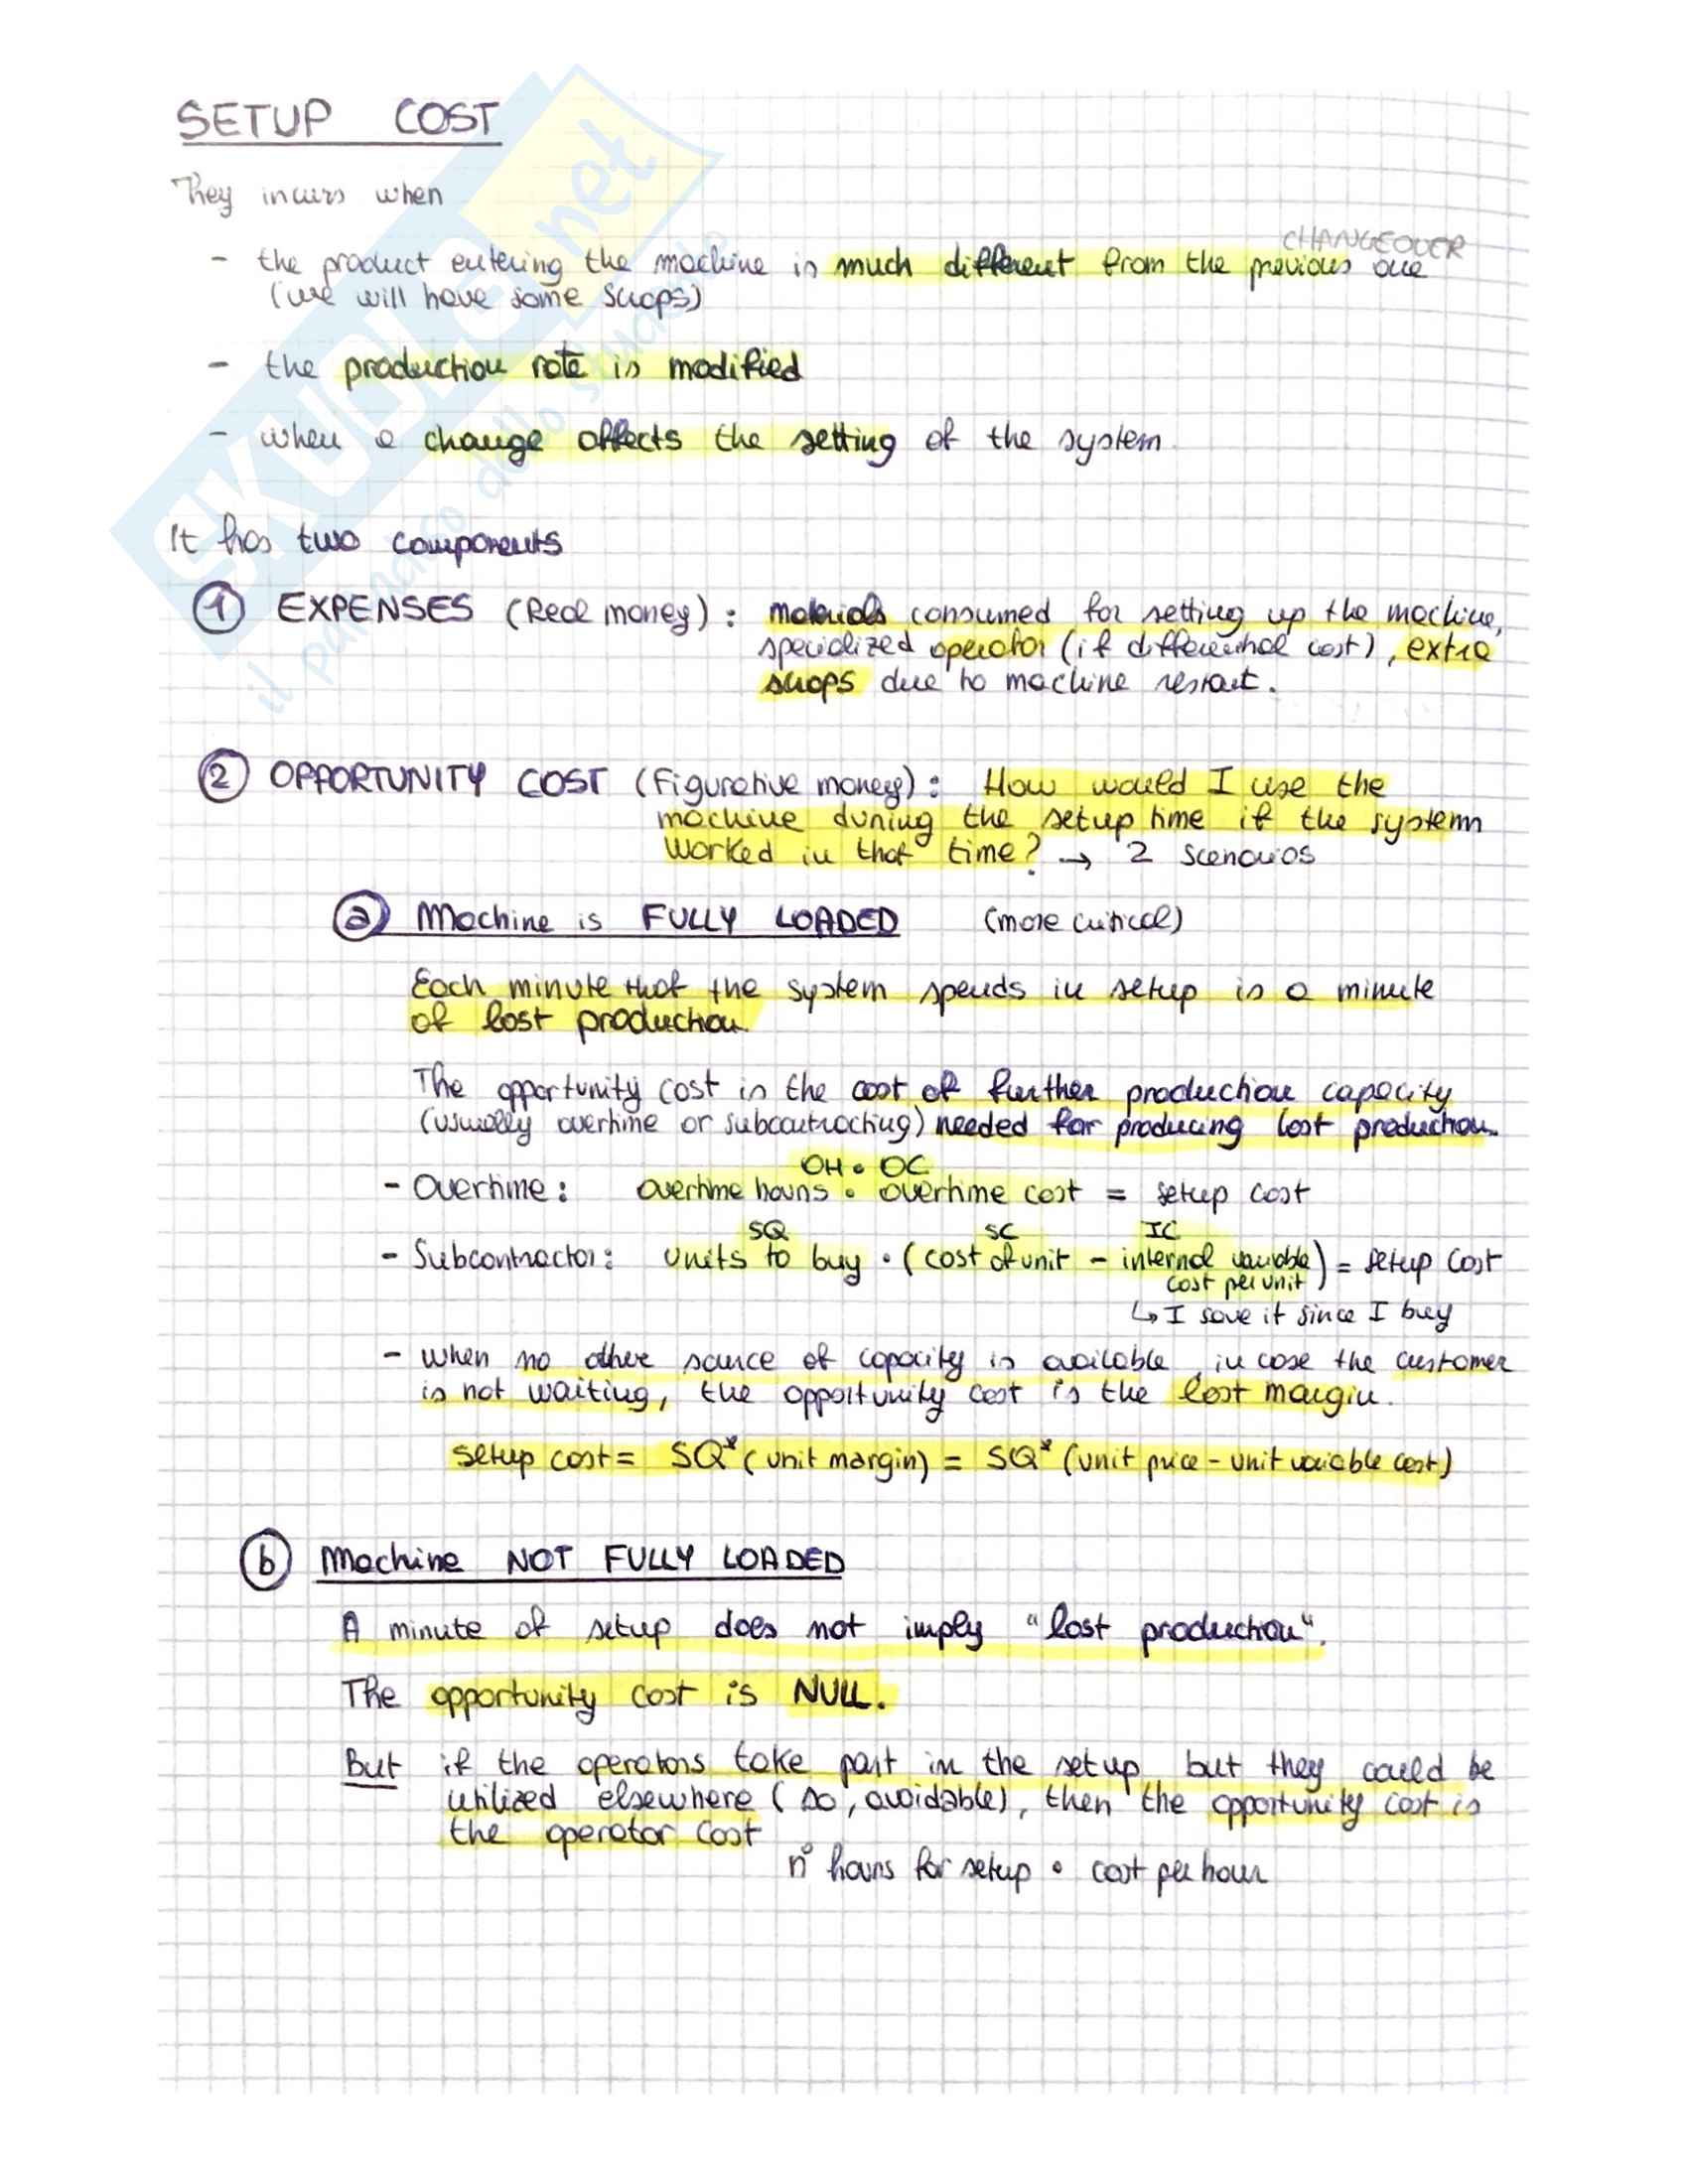 SETUP COST
They incurs when
CHANGEOVER
- the product entering the machine is much different from the previous one
(we will have some scraps)
- the production rate is modified
- when a change affects the setting of the system
It has two components
1 EXPENSES (Real money): materials consumed for setting up the machine,
specialized operator (if differential cost), extra
scraps due to machine restart.
2 OPPORTUNITY COST (Figurative money): How would I use the
machine during the setup time if the system
worked in that time? → 2 scenarios
a) Machine is FULLY LOADED (more critical)
Each minute that the system spends in setup is a minute
of lost production.
The opportunity cost is the cost of further production capacity
(usually overtime or subcontracting) needed for producing lost production.
OH • OC
- Overtime: overtime hours • overtime cost = setup cost
SQ SC IC
- Subcontractor: units to buy • (cost of unit - internal variable
cost per unit) = setup cost
↳ I save it since I buy
- when no other source of capacity is available, in case the customer
is not waiting, the opportunity cost is the lost margin.
setup cost = SQ* (unit margin) = SQ* (unit price - unit variable cost)
b Machine NOT FULLY LOADED
A minute of setup does not imply "lost production".
The opportunity cost is NULL.
But if the operators take part in the setup but they could be
utilized elsewhere (so, avoidable), then the opportunity cost is
the operator cost
n° hours for setup • cost per hour
SKUOLA.net
il paradiso dello studente